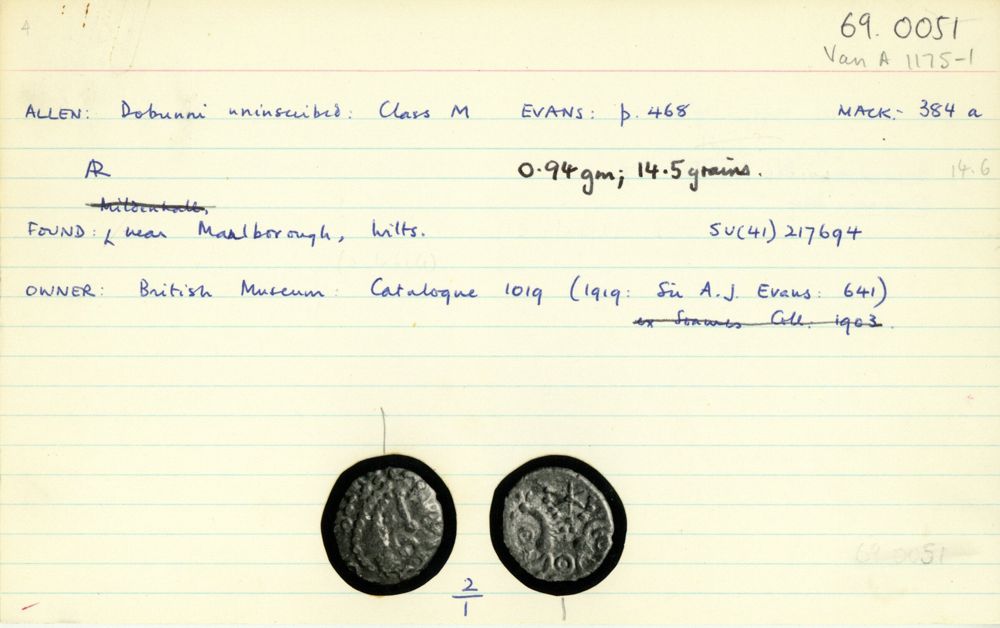 4
69. 0051
Van A 1175-1
ALLEN: Dobunni uninscribed: Class M EVANS: p. 468 MACK:- 384 a
AR 0.94 gm; 14.5 grains. 14.6
Mildenhall,
FOUND: near Marlborough, Wilts. SU(41) 217694
OWNER: British Museum: Catalogue 1019 (1919: Sir A.J. Evans: 641)
ex Soames Coll. 1903.
69.0051
2
1